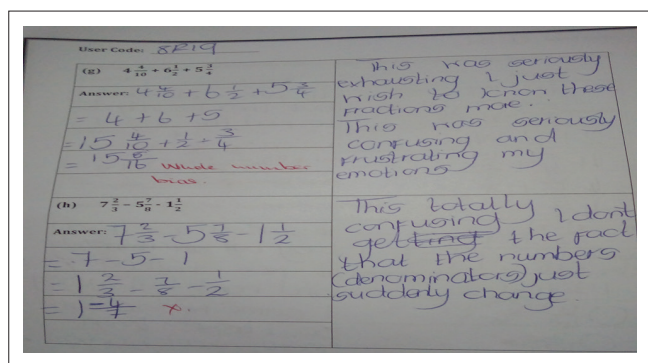 User Code: SR19
(g) 4 4/10 + 6 1/2 + 5 3/4
Answer: 4 4/10 + 6 1/2 + 5 3/4
= 4 + 6 + 5
= 15 4/10 + 1/2 + 3/4
= 15 8/16 Whole number
bias.
This was seriously
exhausting I just
wish to know these
fractions more.
This was seriously
confusing and
frustrating my
emotions
(h) 7 2/3 - 5 7/8 - 1 1/2
Answer: 7 2/3 - 5 7/8 - 1 1/2
= 7 - 5 - 1
= 1 2/3 - 7/8 - 1/2
= 1 -4/7 x.
This totally
confusing I dont
getting the fact
that the numbers
(denominators) just
suddenly change